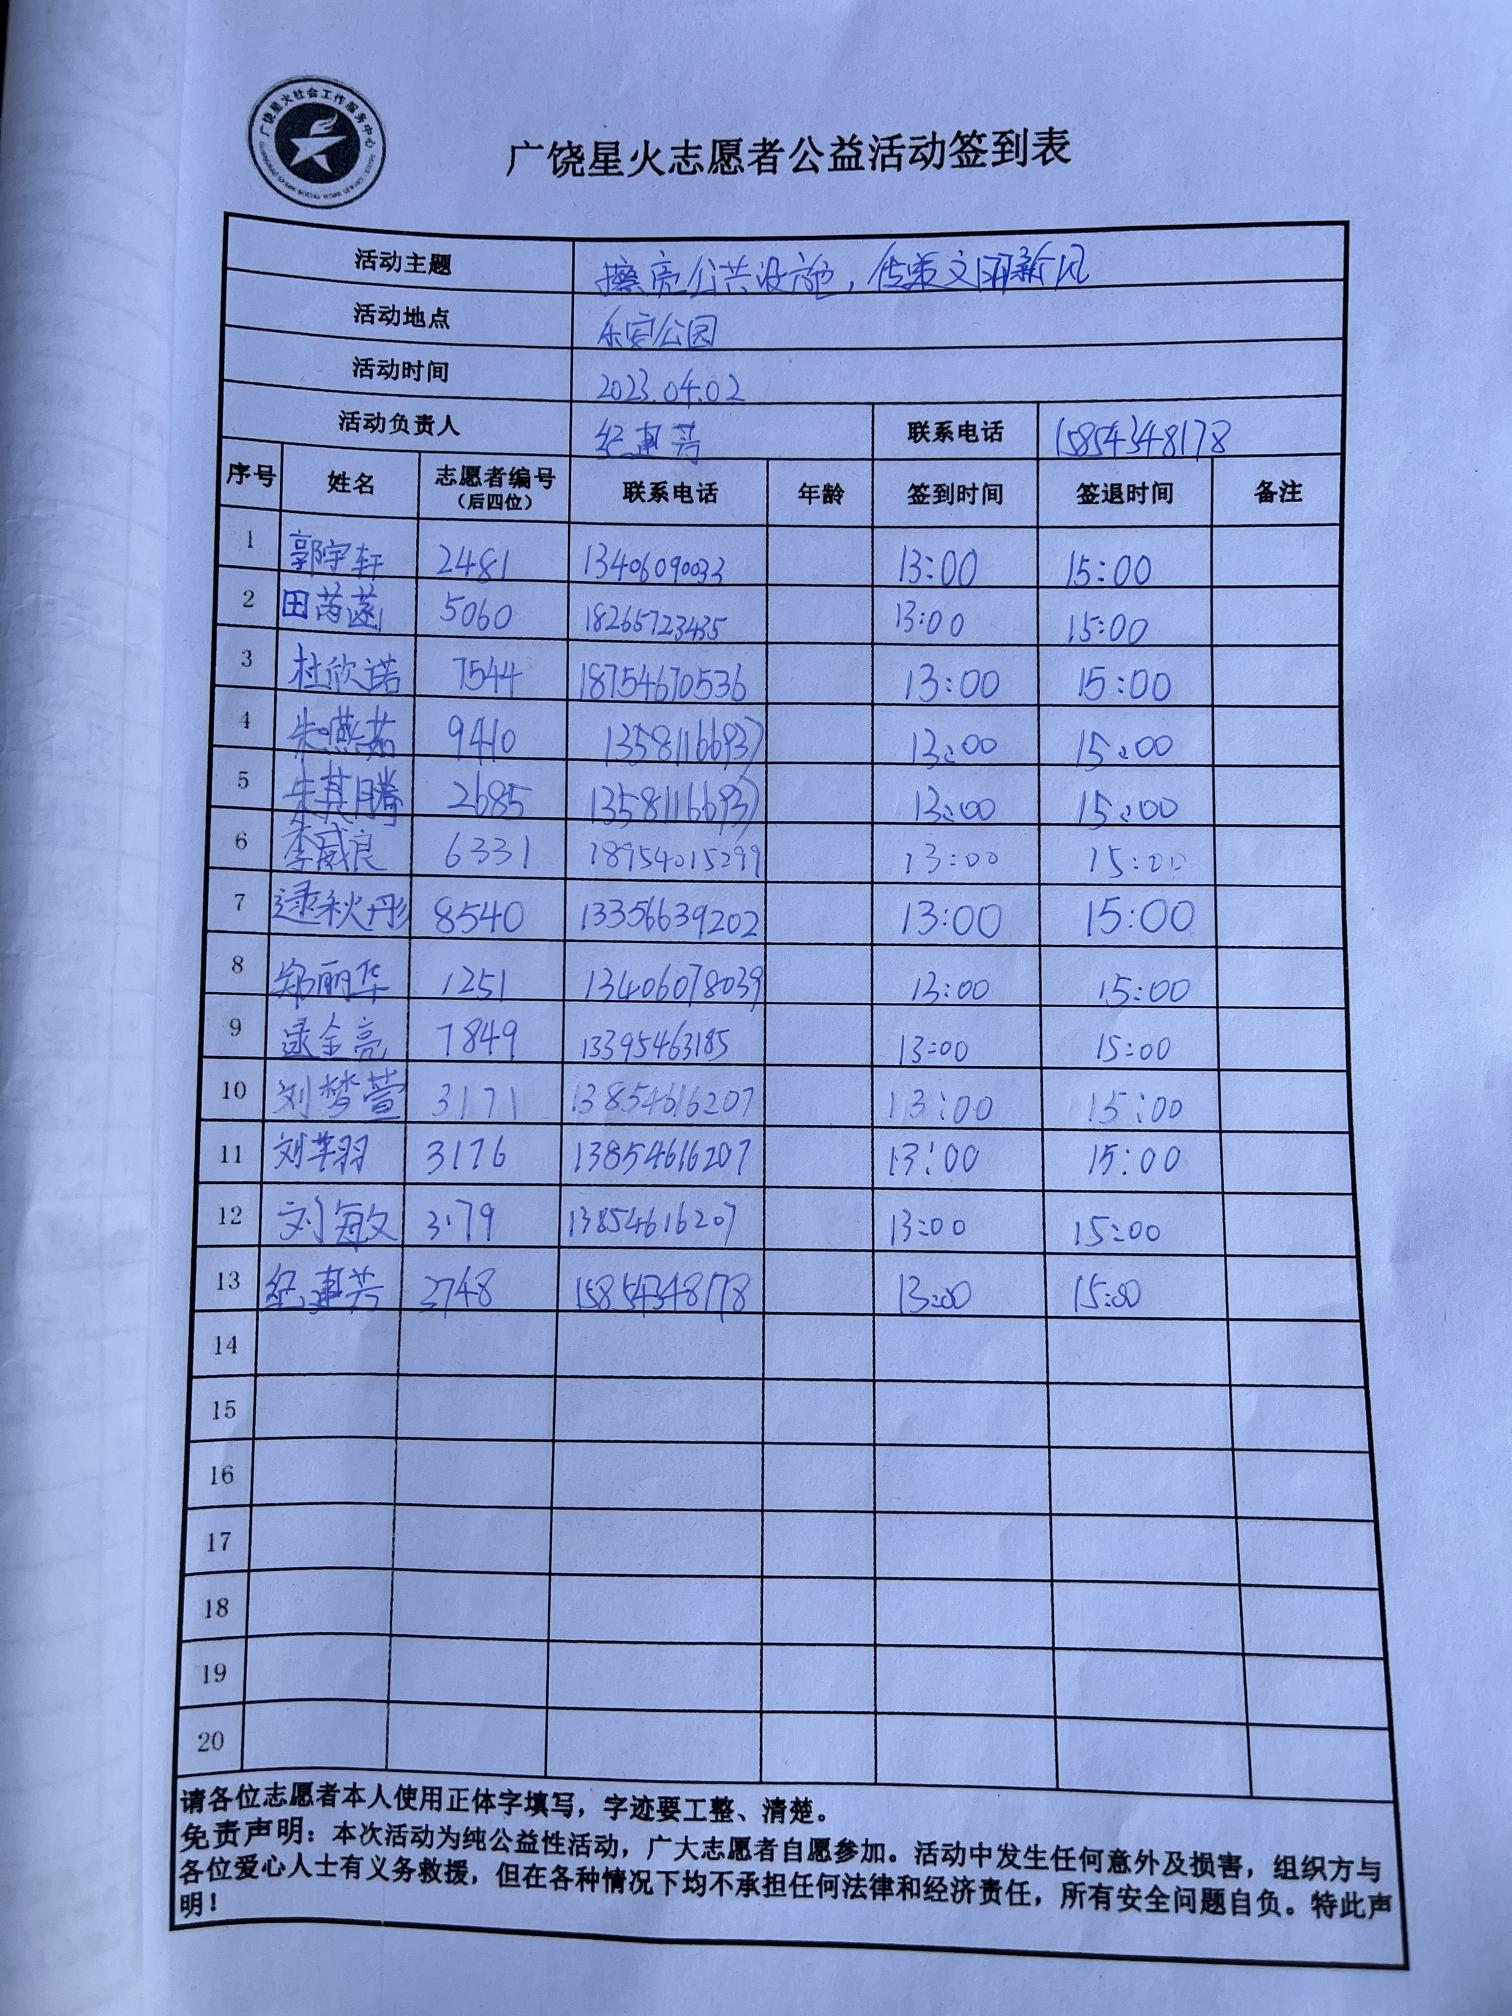 广饶星火社会工作服务中心
广饶星火志愿者公益活动签到表
活动主题 擦亮公共设施，传递文明新风
活动地点 乐安公园
活动时间 2023.04.02
活动负责人 纪建芳 联系电话 15854348178
序号 姓名 志愿者编号（后四位） 联系电话 年龄 签到时间 签退时间 备注
1 郭宇轩 2481 13406090033 13:00 15:00
2 田芮菡 5060 18265723435 13:00 15:00
3 杜欣诺 7544 18754670536 13:00 15:00
4 朱燕茹 9410 13581166937 13:00 15:00
5 朱其腾 2685 13581166937 13:00 15:00
6 李威良 6331 18954015299 13:00 15:00
7 逯秋彤 8540 13356639202 13:00 15:00
8 郑丽华 1251 13406078039 13:00 15:00
9 逯全亮 7849 13395463185 13:00 15:00
10 刘梦萱 3171 13854616207 13:00 15:00
11 刘芊羽 3176 13854616207 13:00 15:00
12 刘敏 3179 13854616207 13:00 15:00
13 纪建芳 2748 15854348178 13:00 15:00
14
15
16
17
18
19
20
请各位志愿者本人使用正体字填写，字迹要工整、清楚。
免责声明：本次活动为纯公益性活动，广大志愿者自愿参加。活动中发生任何意外及损害，组织方与
各位爱心人士有义务救援，但在各种情况下均不承担任何法律和经济责任，所有安全问题自负。特此声
明！